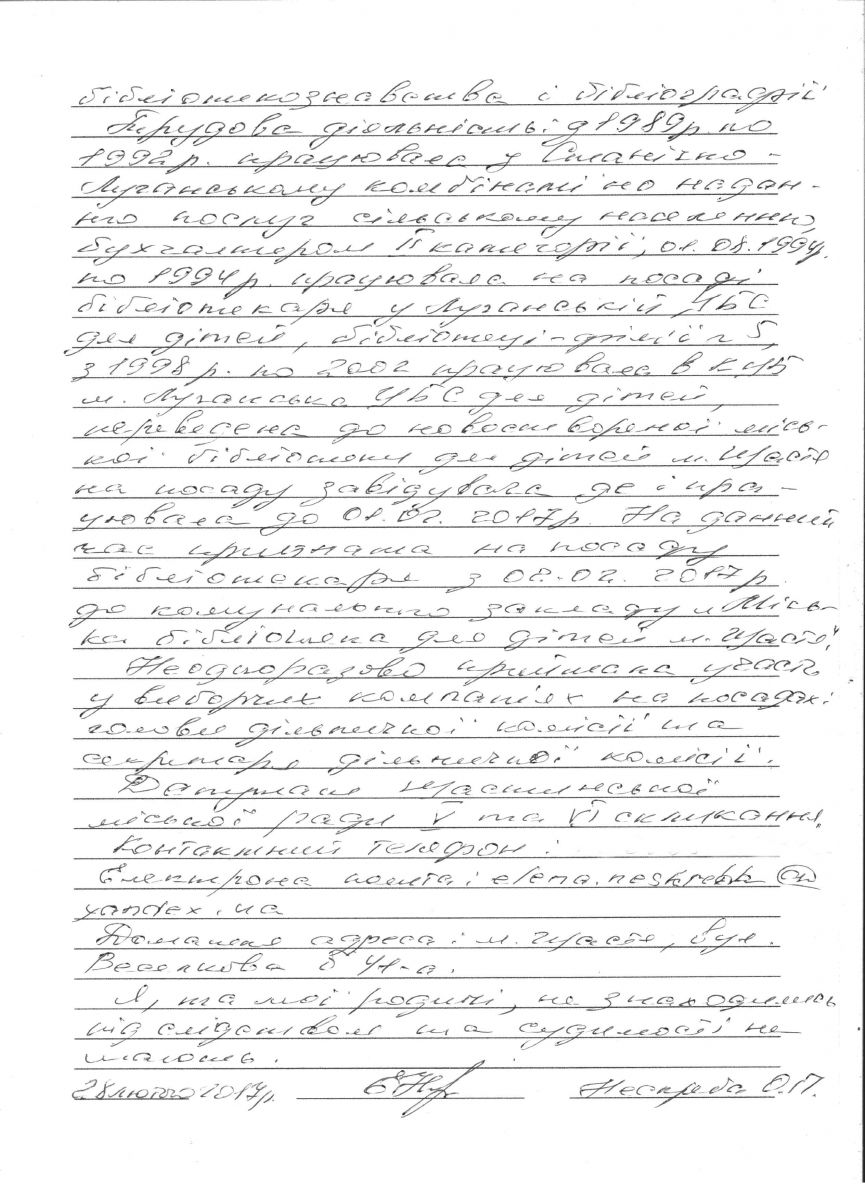 бібліотекознавства і бібліографії
Трудова діяльність: з 1989р. по
1992р. працювала у Станично-
Луганському комбінаті по надан-
ню послуг сільському населенню,
бухгалтером ІІ категорії, 01.08.1994р.
по 1994р. працювала на посаді
бібліотекаря у Луганській ЦБС
для дітей, бібліотеці-філії 5,
з 1998р. по 2002 працювала в КЦБ
м. Луганська ЦБС для дітей,
переведена до новоствореної місь-
кої бібліотеки для дітей м. Щастя
на посаду завідувача де і пра-
цювала до 01.02. 2017р. На данний
час прийнята на посаду
бібліотекаря з 02.02. 2017р
до комунального закладу „Місь-
ка бібліотека для дітей м. Щастя"
Неодноразово приймала участь
у виборчих компаніях на посадах:
голови дільничної комісії та
секретаря дільничної комісії.
Депутат Щастинської
міської ради V та VI скликання.
Контактний телефон:
Електрона пошта: elena.neskrebk @
yandex.ua
Домашня адреса: м. Щастя, вул.
Веселкова б 41-а.
Я, та мої родичі, не знаходились
під слідством та судимості не
мають.
28 лютого 2017р. Нескреба О.П.